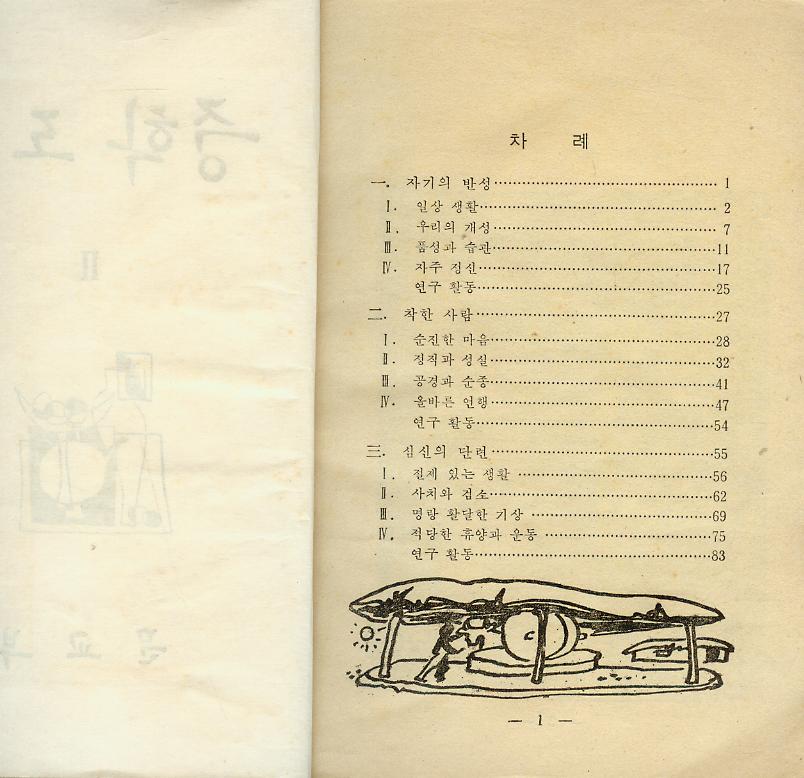 중학 도
II
문교부
차 례
一. 자기의 반성 1
Ⅰ. 일상 생활 2
Ⅱ. 우리의 개성 7
Ⅲ. 품성과 습관 11
Ⅳ. 자주 정신 17
연구 활동 25
二. 착한 사람 27
Ⅰ. 순진한 마음 28
Ⅱ. 정직과 성실 32
Ⅲ. 공경과 순종 41
Ⅳ. 올바른 언행 47
연구 활동 54
三. 심신의 단련 55
Ⅰ. 절제 있는 생활 56
Ⅱ. 사치와 검소 62
Ⅲ. 명랑 활달한 기상 69
Ⅳ. 적당한 휴양과 운동 75
연구 활동 83
— 1 —